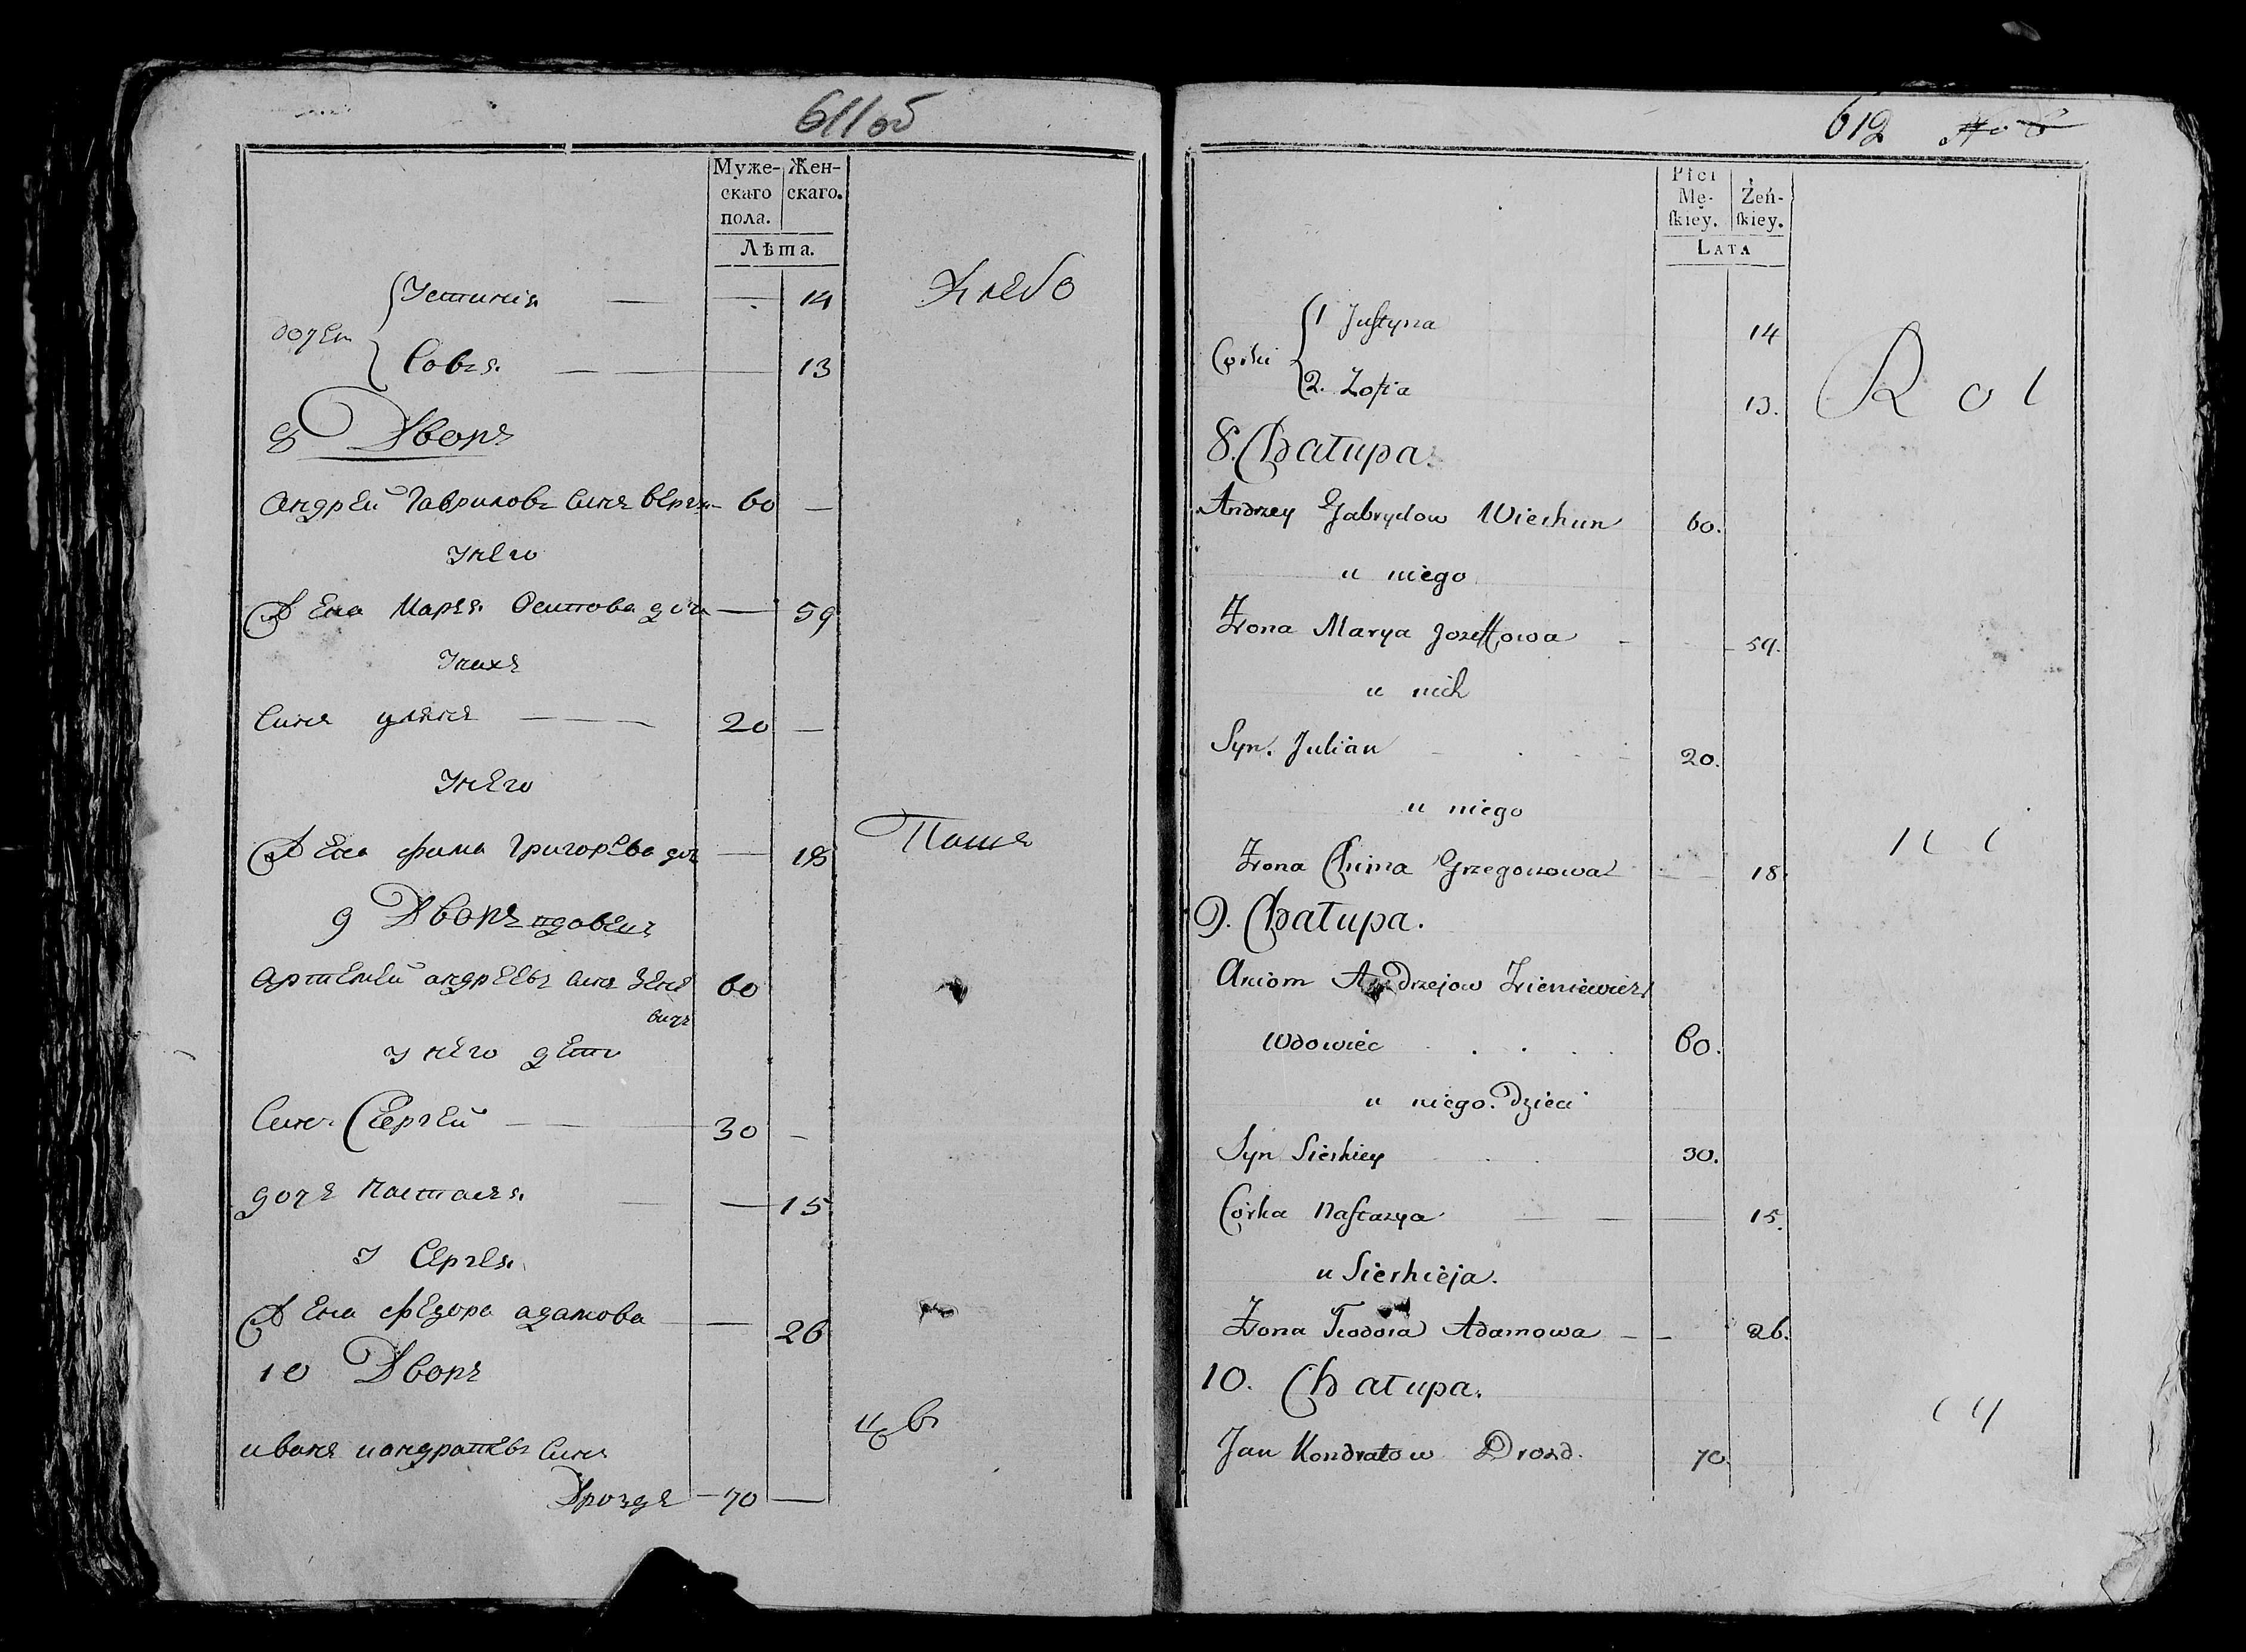 611об
Муже-
скаго
пола.
Жен-
скаго.
Лѣта.
Устинія 14
дочери
Софья 13
Хлебо
8 Дворъ
Андрей Гавриловъ Сынъ 60 —
У него
Жена Марья Осипова дочь — 59
У нихъ
Сынъ Улянъ — 20 —
У него
Жена Фима Григорьева доч — 18
Паше
9 Дворъ вдовецъ
Артемей Андреевъ сынъ Зене 60
вичъ
У него дети
Сынъ Сергей — 30 —
Дочь Настасья — 15
У Сергея
Жена Федора Адамова — 26
10 Дворъ
цовъ
Иванъ Кондратьевъ Сынъ
Дроздъ — 70 —
612
Płci
Mę-
ſkiey.
Żeń-
ſkiey.
LATA
1 Juſtyna 14
Corki
2. Zofia 13.
R o l
8. Chałupa.
Andrzey Gabryelow Wierhun 60.
u niego
Żona Marya Jozeffowa - 59.
u nich
Syn. Julian 20.
u niego
n i
Żona Chima Grzegorzowa 18.
9. Chałupa.
Arciom Andrzejow Zieniewicz
Wdowiec . . . . 60.
u niego Dzieci
Syn Sierhiey 30.
Corka Naſtazya 15.
u Sierhieja.
Żona Teodora Adamowa — 26.
10. Chałupa.
c y
Jan Kondratow Drozd. 70.